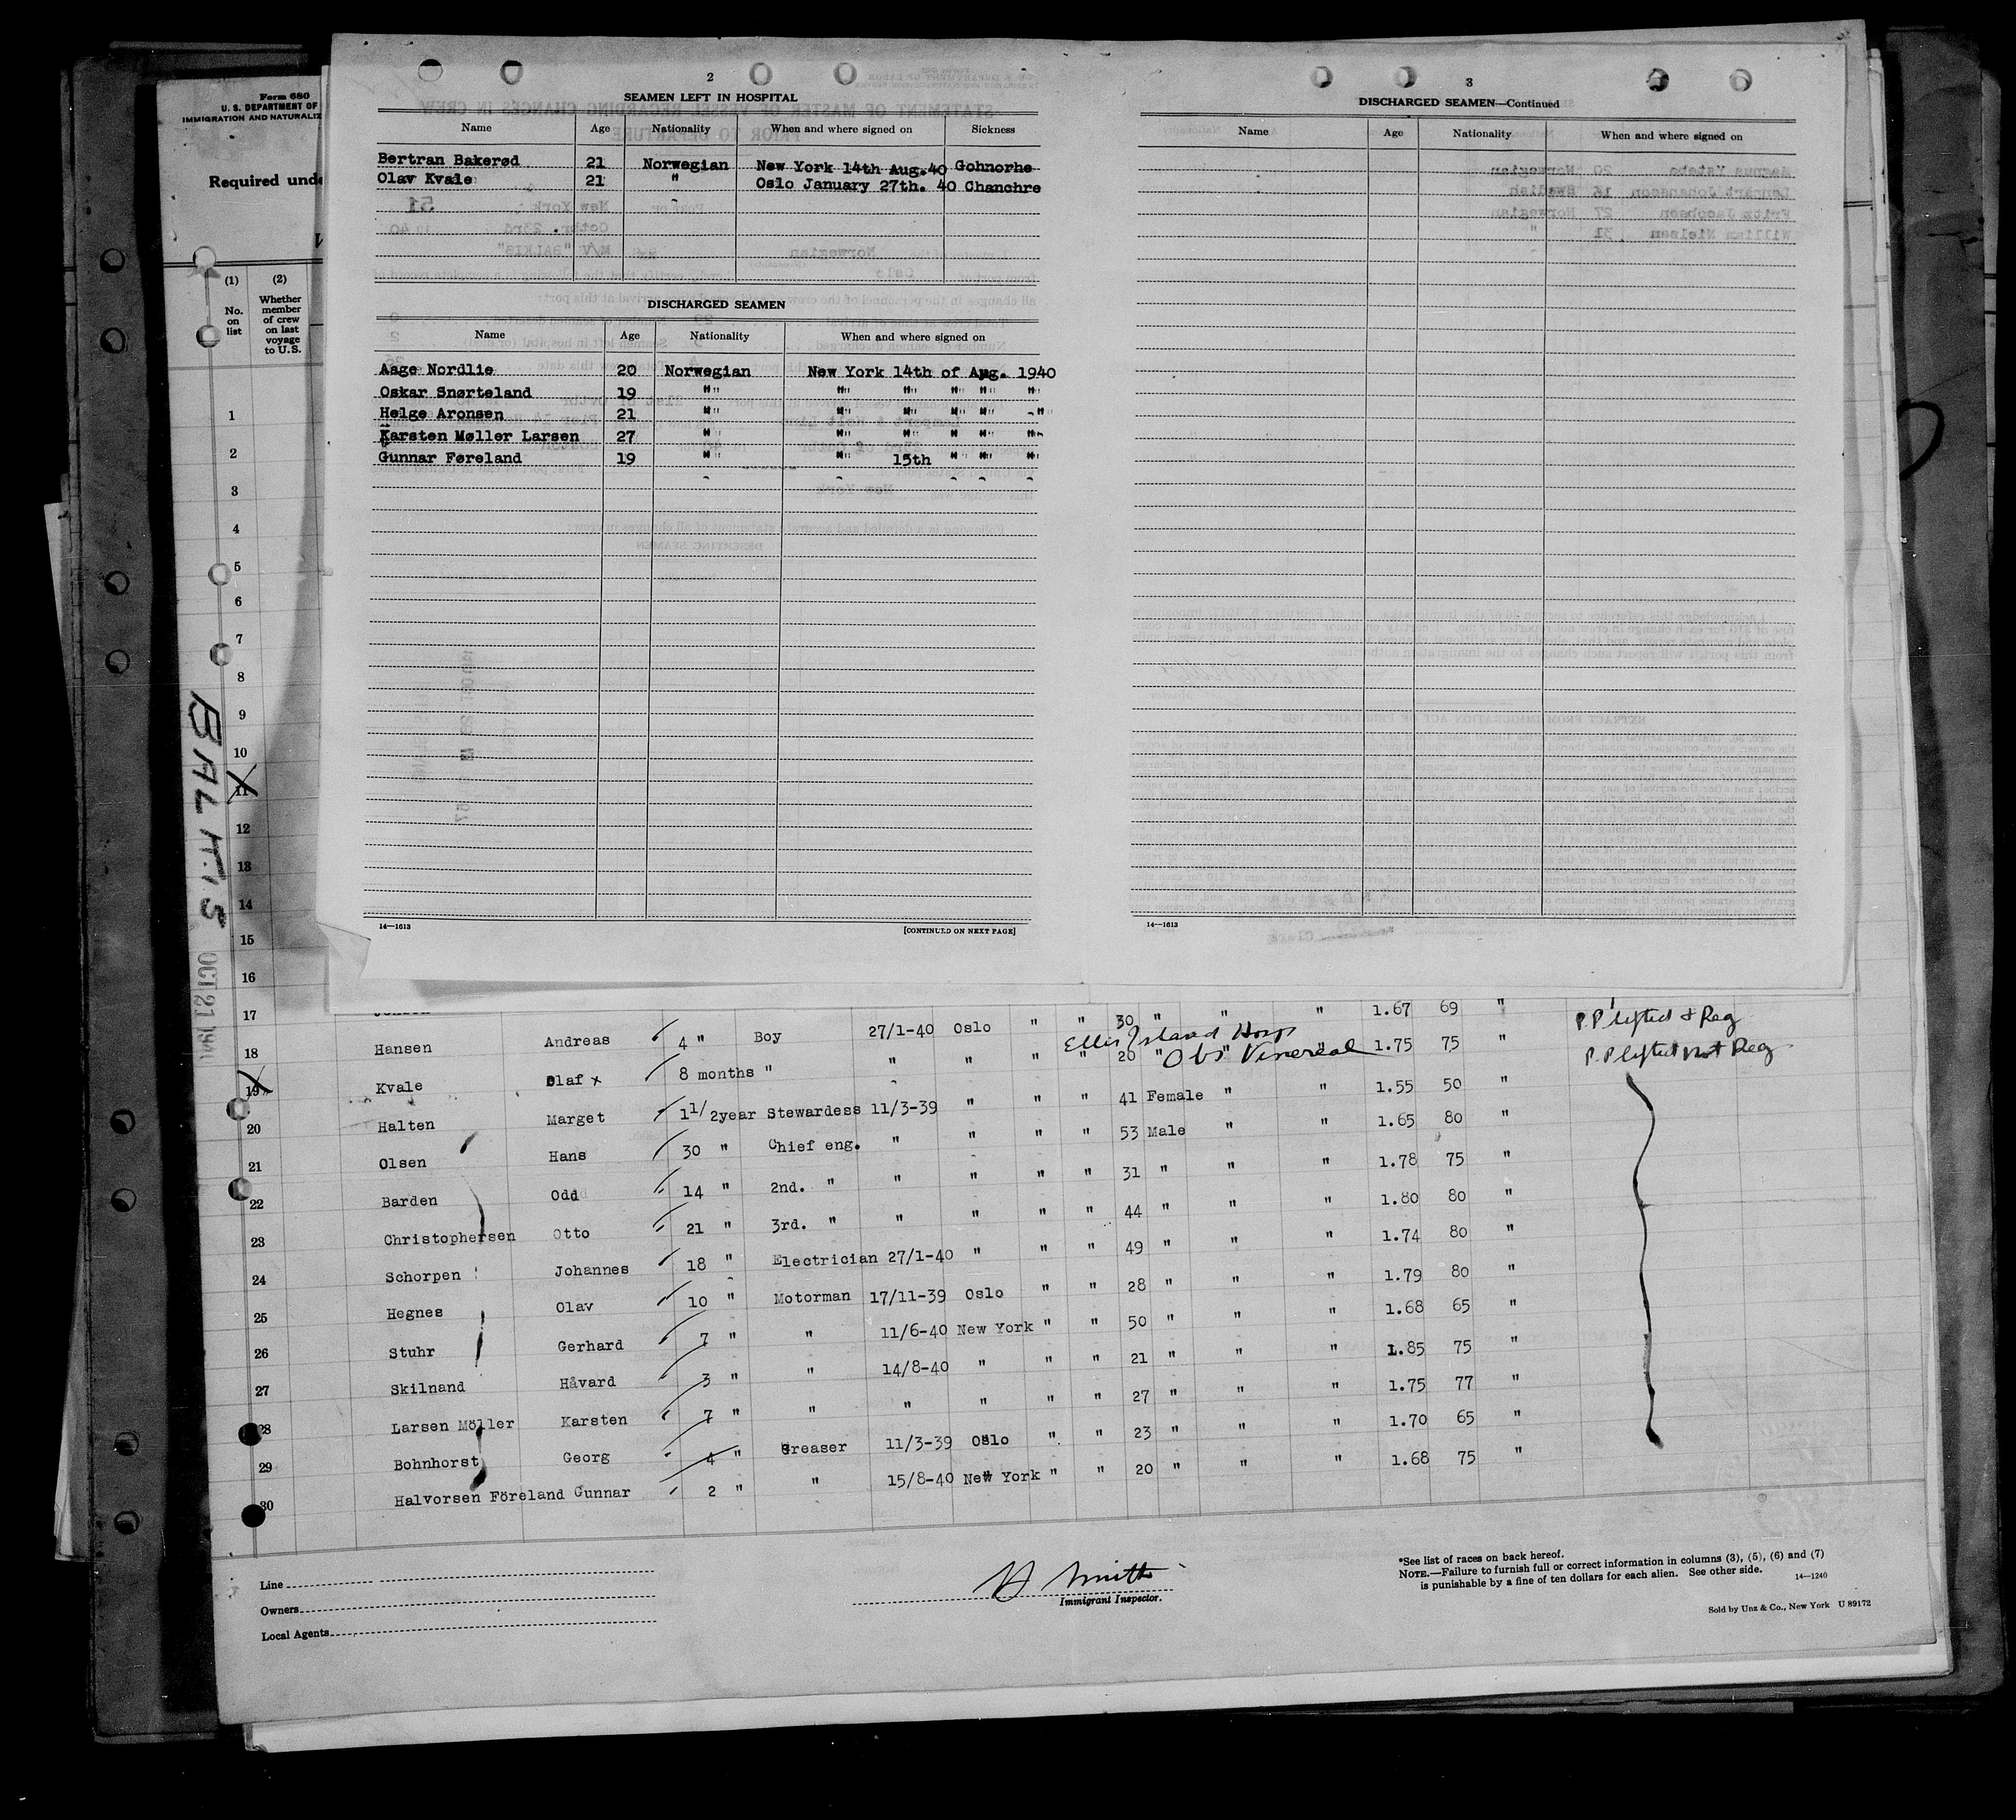 Form 680
U. S. DEPARTMENT OF
IMMIGRATION AND NATURALIZ
Required unde
(1) (2)
No. on list
Whether member of crew on last voyage to U.S.
1
2
3
4
5
6
7
8
9
10
11
12
13
14
15
16
17
18
19
20
21
22
23
24
25
26
27
28
29
30
BALTIS
OCT 21 1940
2
SEAMEN LEFT IN HOSPITAL
Name Age Nationality When and where signed on Sickness
Bertran Bakerød 21 Norwegian New York 14th Aug.40 Gohnorhe
Olav Kvale 21 " Oslo January 27th. 40 Chanchre
DISCHARGED SEAMEN
Name Age Nationality When and where signed on
Aage Nordlie 20 Norwegian New York 14th of Aug. 1940
Oskar Snørteland 19 " " " " " "
Helge Aronsen 21 " " " " " "
Karsten Møller Larsen 27 " " " " " "
Gunnar Føreland 19 " " 15th " " "
14—1613 [CONTINUED ON NEXT PAGE]
3
DISCHARGED SEAMEN—Continued
Name Age Nationality When and where signed on
14—1613
1.67 69 "
Hansen Andreas 4 " Boy 27/1-40 Oslo " " 30 " " " 1.75 75 " P.P lifted & Reg
Ellis Island Hosp
Obs Venereal
Kvale Olaf x 8 months " " " " " 20 " " " 1.55 50 " P.P lifted not Reg
Halten Marget 1 1/2year Stewardess 11/3-39 " " " 41 Female " " 1.65 80 "
Olsen Hans 30 " Chief eng. " " " " 53 Male " " 1.78 75 "
Barden Odd 14 " 2nd. " " " " " 31 " " " 1.80 80 "
Christophersen Otto 21 " 3rd. " " " " " 44 " " " 1.74 80 "
Schorpen Johannes 18 " Electrician 27/1-40 " " " 49 " " " 1.79 80 "
Hegnes Olav 10 " Motorman 17/11-39 Oslo " " 28 " " " 1.68 65 "
Stuhr Gerhard 7 " " 11/6-40 New York " " 50 " " " 1.85 75 "
Skilnand Håvard 3 " " 14/8-40 " " " 21 " " " 1.75 77 "
Larsen Möller Karsten 7 " " " " " " 27 " " " 1.70 65 "
Bohnhorst Georg 4 " Greaser 11/3-39 Oslo " " 23 " " " 1.68 75 "
Halvorsen Föreland Gunnar 2 " " 15/8-40 New York " " 20 " " "
Line
Owners
Local Agents
H Smith
Immigrant Inspector.
*See list of races on back hereof.
NOTE.—Failure to furnish full or correct information in columns (3), (5), (6) and (7)
is punishable by a fine of ten dollars for each alien. See other side.
14—1240
Sold by Unz & Co., New York U 89172